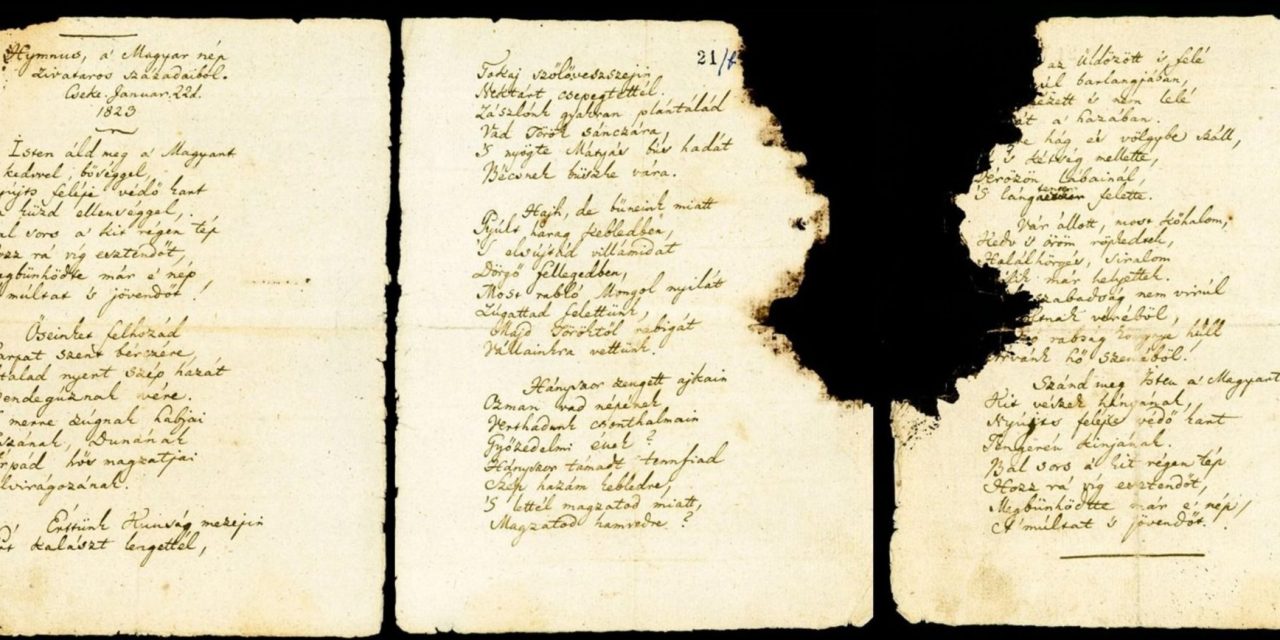 Hymnus, a' Magyar nép
zivataros századaiból.
Cseke. Januar. 22d.
1823
Isten áldd meg a' Magyart
kedvvel, bőséggel,
nyújts feléje védő kart
küzd ellenséggel,
Bal sors a' kit régen tép
Hozz rá víg esztendőt,
Megbünhödte már e' nép
múltat 's jövendőt!
Őseinket felhozád
Kárpát szent bérczére,
által nyert szép hazát
Bendegúznak vére.
merre zúgnak habjai
Tiszának, Dunának
Árpád hős magzatjai
virágozának.
Értünk Kunság mezejin
kalászt lengettél,
21/
Tokaj szőlővesszejin
Nektárt csepegtettél.
Zászlónk gyakran plántálád
Vad Török sánczára,
'S nyögte Mátyás bús hadát
Bécsnek büszke vára.
Hajh, de bűneink miatt
Gyúlt harag kebledben,
'S elsújtád villámidat
Dörgő fellegedben,
Most rabló Mongol nyilát
Zúgattad felettünk,
Majd Töröktől rabigát
Vállainkra vettünk.
Hányszor zengett ajkain
Ozman vad népének
Vert hadunk csonthalmain
Győzedelmi ének?
Hányszor támadt tennfiad
Szép hazám kebledre,
'S lettél magzatod miatt,
Magzatod hamvedre?
az üldözött 's felé
barlangjában,
nézett 's nem lelé
a' hazában.
hág és völgybe száll,
's kétség mellette,
Vérözön lábainál,
'S lángtenger felette.
Vár állott, most kőhalom,
Kedv 's öröm röpkedtek,
Halálhörgés, siralom
már helyettek.
szabadság nem virúl
véréből,
rabság könnye hull
hő szeméből!
Szánd meg Isten a' Magyart
Kit vészek hányának,
Nyújts feléje védő kart
Tengerén kínjának.
Bal sors a' kit régen tép
Hozz rá víg esztendőt,
Megbünhödte már e' nép
A' múltat 's jövendőt!